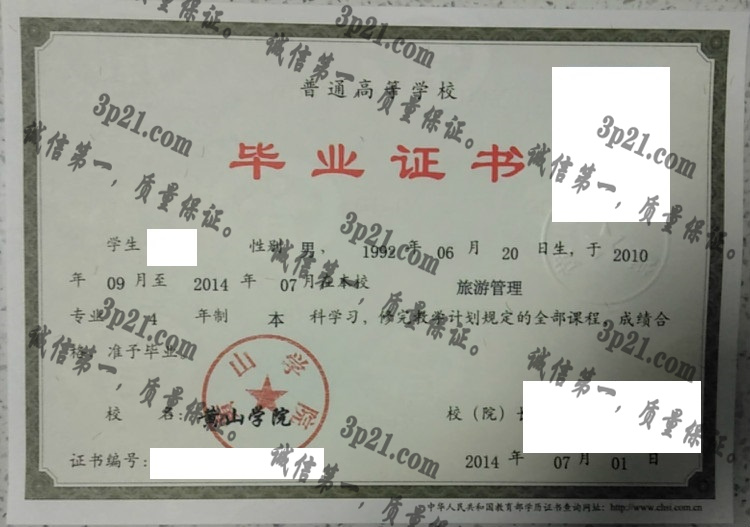 普通高等学校
毕业证书
学生 性别 男，1992 年 06 月 20 日生，于 2010
年 09 月至 2014 年 07 月在本校 旅游管理
专业 4 年制 本 科学习，修完教学计划规定的全部课程，成绩合
格，准予毕业
校 名：黄山学院 校（院）长
证书编号：
2014 年 07 月 01 日
中华人民共和国教育部学历证书查询网址：http://www.chsi.com.cn
山学院
3p21.com
诚信第一，质量保证。
3p21.com
诚信第一，质量保证。
3p21.com
诚信第一，质量保证。
3p21.com
诚信第一，质量保证。
3p21.com
诚信第一，质量保证。
3p21.com
诚信第一，质量保证。
3p21.com
诚信第一，质量保证。